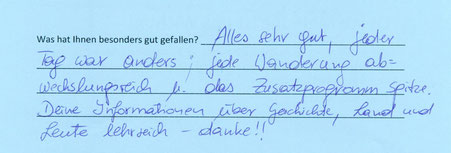 Was hat Ihnen besonders gut gefallen? Alles sehr gut, jeder
Tag war anders; jede Wanderung ab=
wechslungsreich u. das Zusatzprogramm Spitze.
Deine Informationen über Geschichte, Land und
Leute lehrreich - danke!!